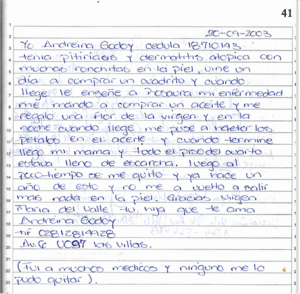 41
20-09-2003
Yo Andreina Godoy cedula 18710193
tenia pitiriasis y dermatitis atopica con
muchas ronchitas en la piel, vine un
dia a comprar un cuadrito y cuando
llege le enseñe a mi enfermedad
me mando a comprar un aceite y me
regalo una flor de la virgen y en la
noche cuando llege me puse a meter los
petalos en el aceite y cuando termine
llego mi mama y todo el piso del cuarto
estava lleno de escarcha. luego al
poco tiempo se me quito y ya hace un
año de esto y no me a vuelto a salir
mas nada en la piel. Gracias Virgen
Maria del Valle tu hija que te ama
Andreina Godoy
Tlf 02812814928
Av. las Villas.
(Fui a muchos medicos y ninguno me lo
pudo quitar).